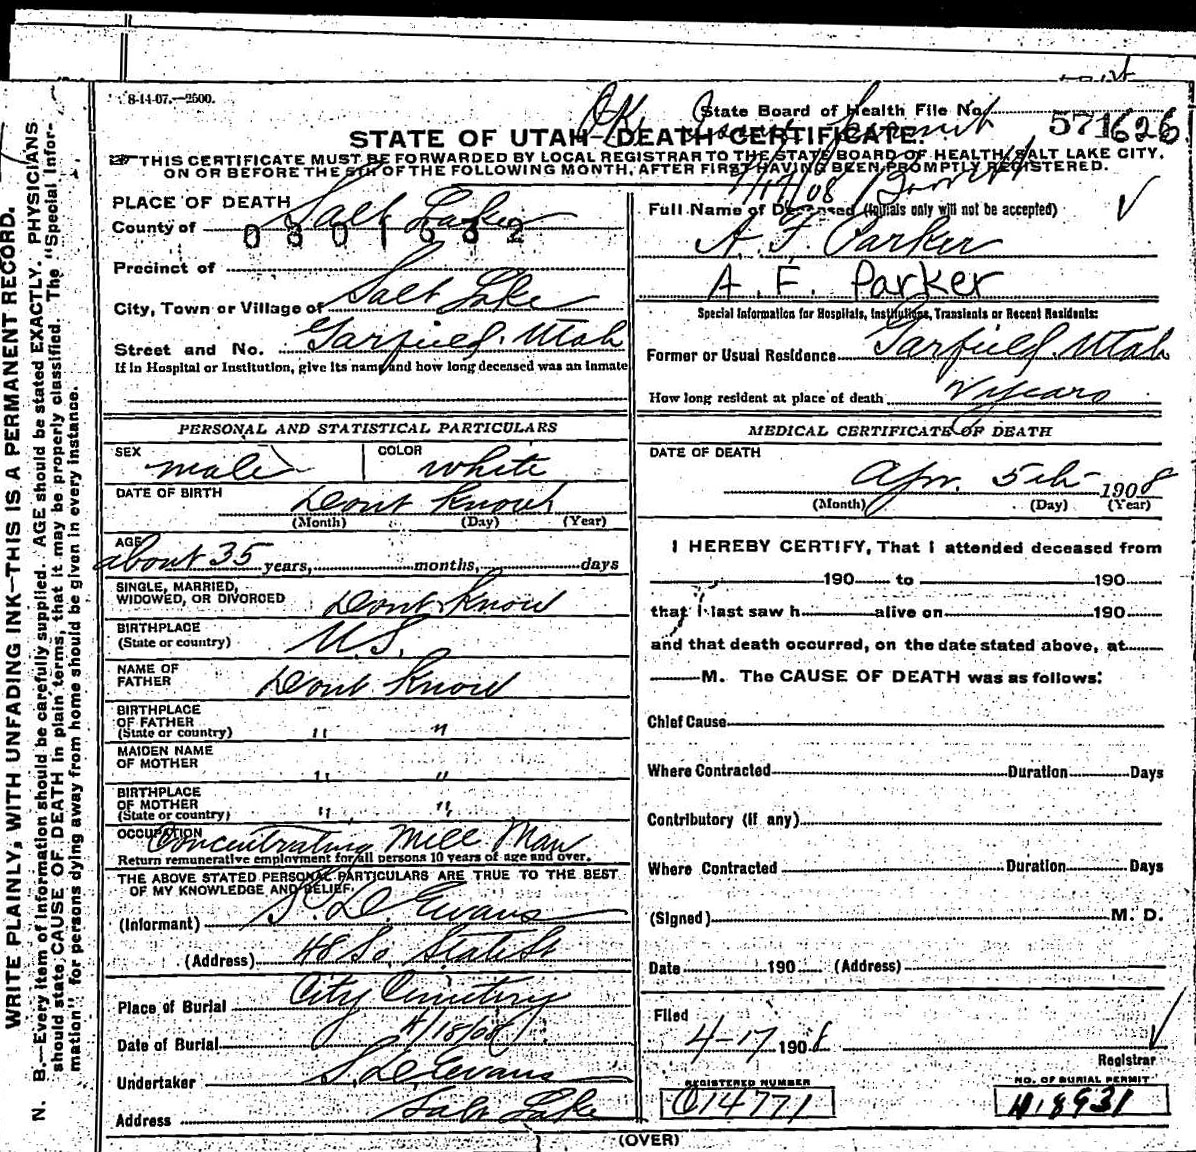 8-14-07.—2500.
State Board of Health File No. 571626
OK
STATE OF UTAH—DEATH CERTIFICATE.
THIS CERTIFICATE MUST BE FORWARDED BY LOCAL REGISTRAR TO THE STATE BOARD OF HEALTH, SALT LAKE CITY,
ON OR BEFORE THE 5TH OF THE FOLLOWING MONTH, AFTER FIRST HAVING BEEN PROMPTLY REGISTERED.
PLACE OF DEATH
County of Salt Lake
0801632
Precinct of
City, Town or Village of Salt Lake
Street and No. Garfield, Utah
If in Hospital or Institution, give its name and how long deceased was an inmate
Full Name of Deceased (Initials only will not be accepted)
A. F. Parker
A. F. Parker
Special Information for Hospitals, Institutions, Transients or Recent Residents:
Former or Usual Residence Garfield Utah
How long resident at place of death years
PERSONAL AND STATISTICAL PARTICULARS
SEX male
COLOR white
DATE OF BIRTH Dont Know
(Month) (Day) (Year)
AGE about 35 years, months, days
SINGLE, MARRIED,
WIDOWED, OR DIVORCED Dont Know
BIRTHPLACE
(State or country) U.S.
NAME OF
FATHER Dont Know
BIRTHPLACE
OF FATHER
(State or country) " "
MAIDEN NAME
OF MOTHER " "
BIRTHPLACE
OF MOTHER
(State or country) " "
OCCUPATION Concentrating Mill Man
Return remunerative employment for all persons 10 years of age and over.
THE ABOVE STATED PERSONAL PARTICULARS ARE TRUE TO THE BEST
OF MY KNOWLEDGE AND BELIEF.
(Informant) S. D. Evans
(Address) 48 So. State St
Place of Burial City Cemetery
Date of Burial 4/18/08
Undertaker S. D. Evans
Address Salt Lake
MEDICAL CERTIFICATE OF DEATH
DATE OF DEATH
Apr. 5th 1908
(Month) (Day) (Year)
I HEREBY CERTIFY, That I attended deceased from
190 to 190
that I last saw h alive on 190
and that death occurred, on the date stated above, at
M. The CAUSE OF DEATH was as follows:
Chief Cause
Where Contracted Duration Days
Contributory (if any)
Where Contracted Duration Days
(Signed) M. D.
Date 190 (Address)
Filed
4-17 1908
Registrar
REGISTERED NUMBER
014771
NO. OF BURIAL PERMIT
H18931
(OVER)
WRITE PLAINLY, WITH UNFADING INK—THIS IS A PERMANENT RECORD.
N. B.—Every item of information should be carefully supplied. AGE should be stated EXACTLY. PHYSICIANS
should state CAUSE OF DEATH in plain terms, that it may be properly classified. The "Special Infor-
mation" for persons dying away from home should be given in every instance.